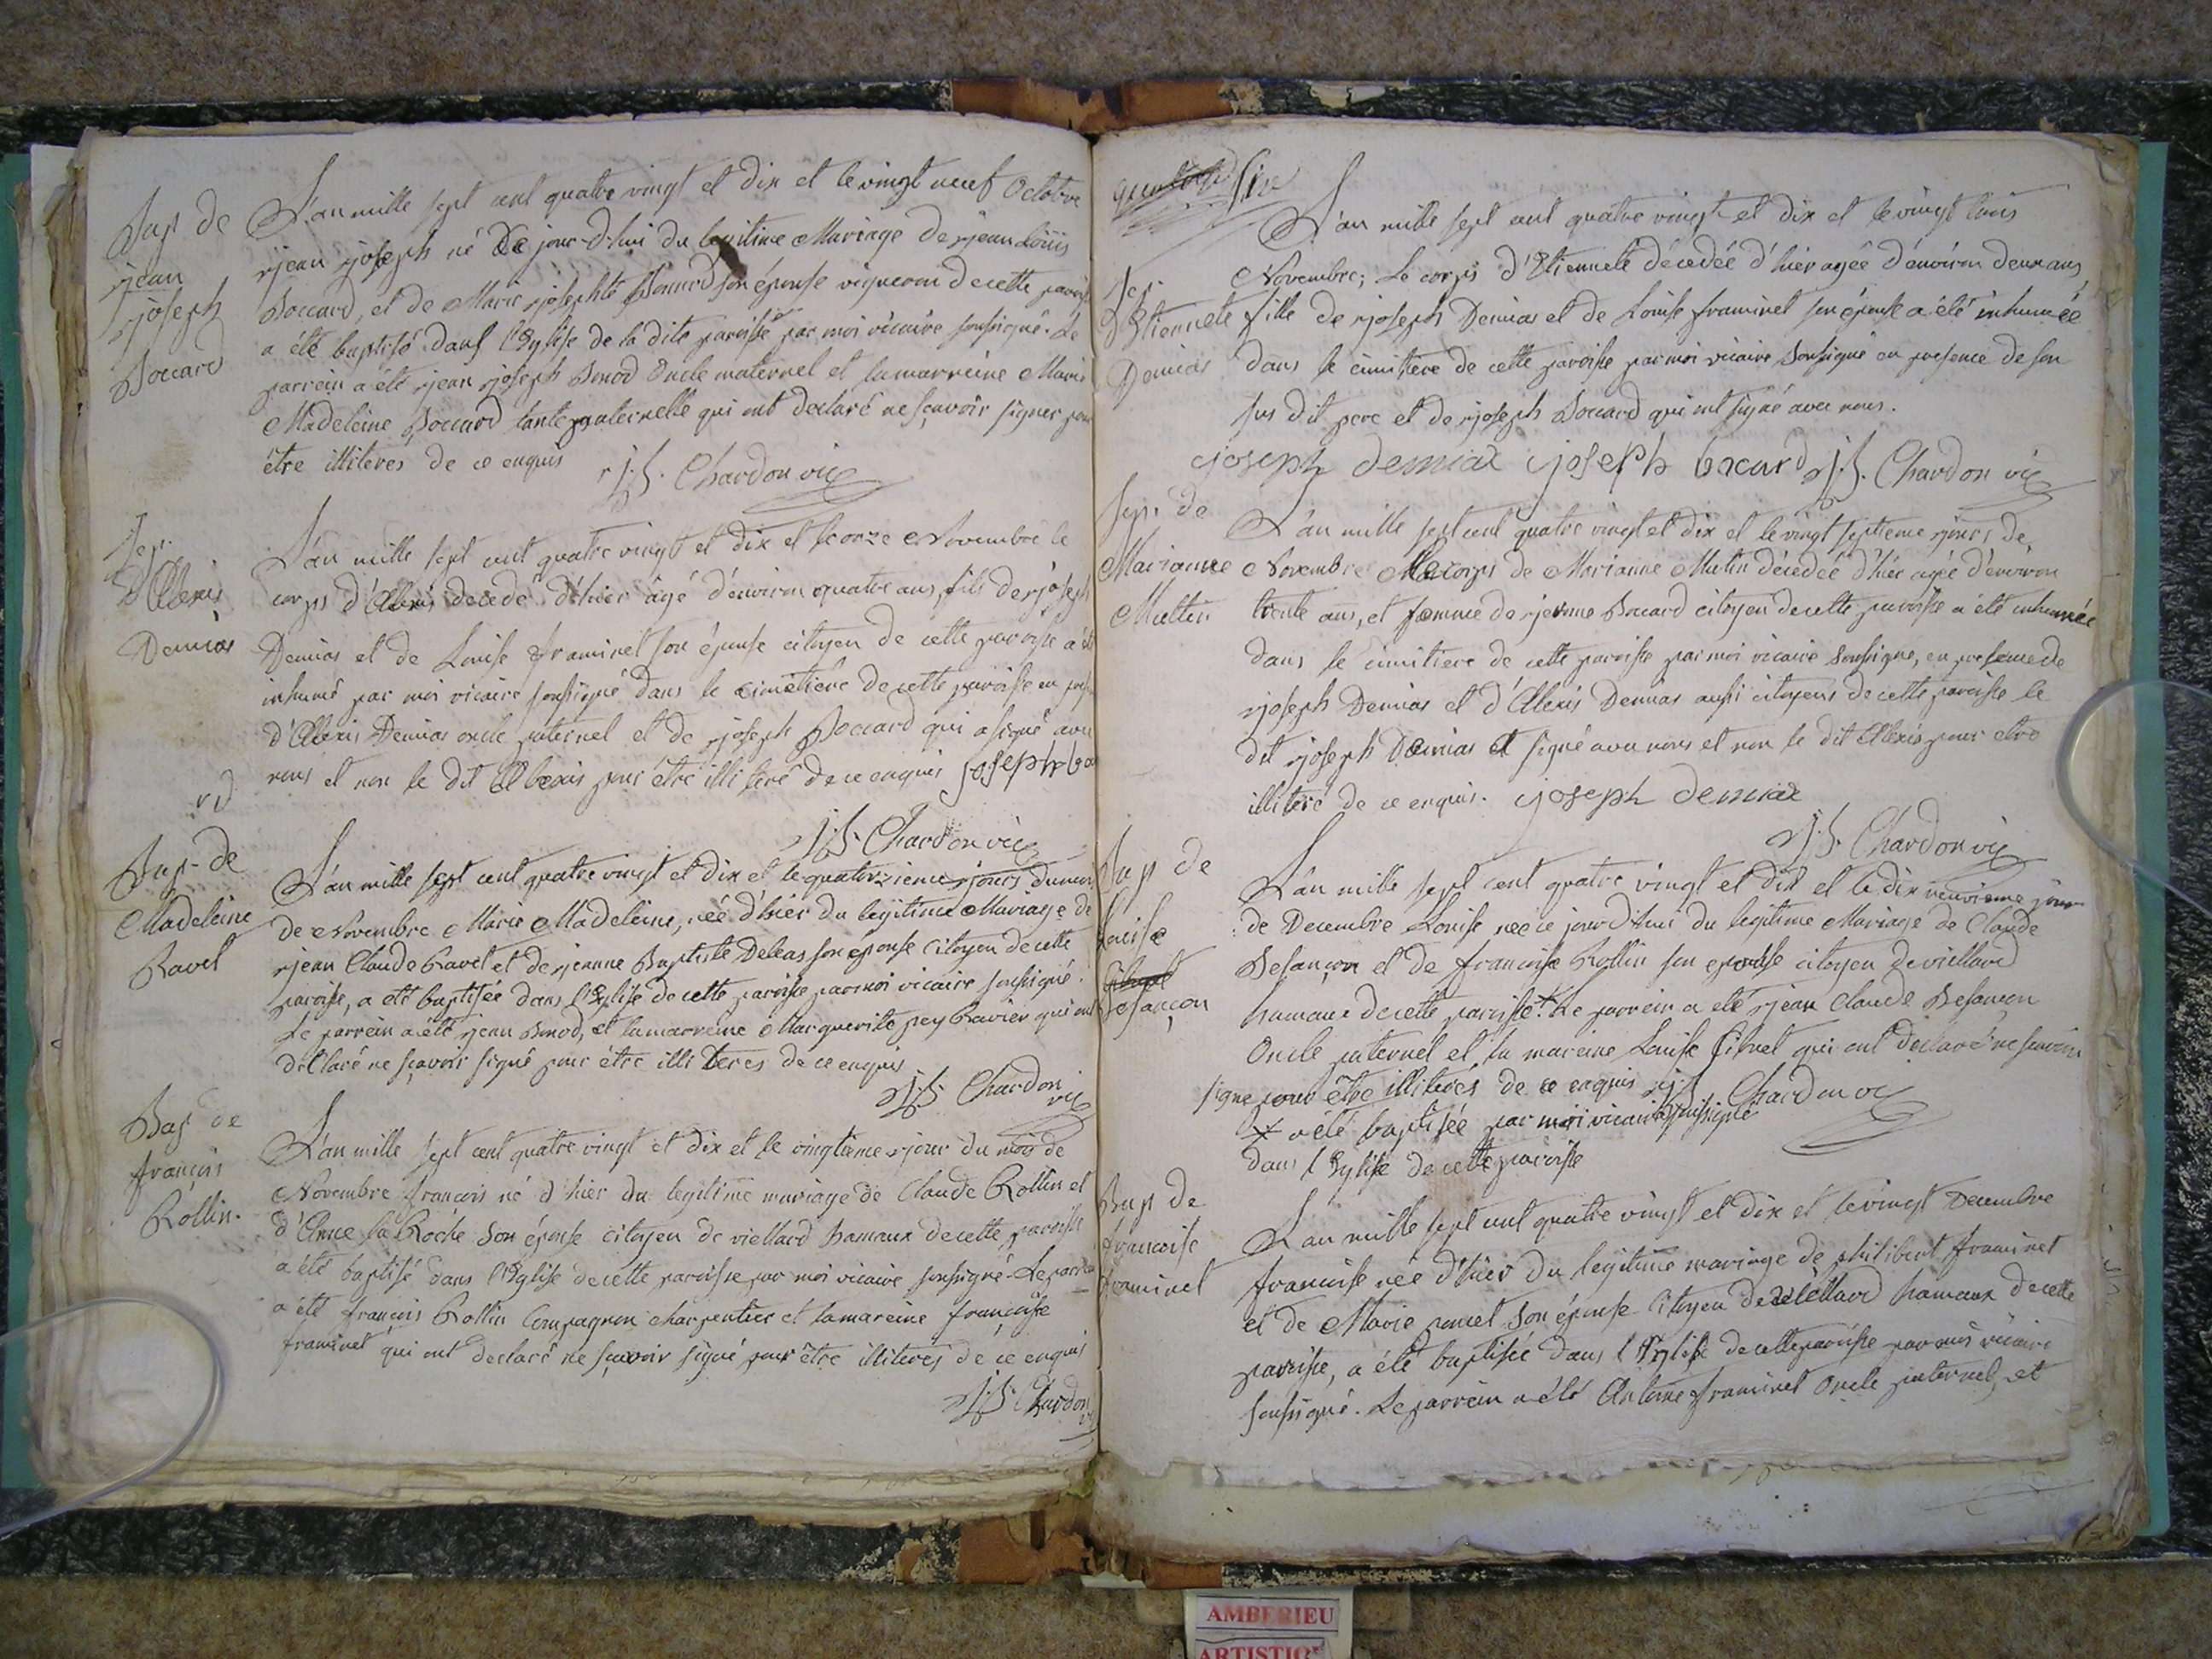 Bap de
jean
joseph
Boccard
L'an mille sept cent quatre vingt et dix et le vingt neuf Octobre
jean joseph né Ce jour d'hui du legitime Mariage de jean Loüis
Boccard, et de Marie josephte Bonnod son épouse vigneron de cette paroisse
a été baptisé dans l'Eglise de la dite paroisse par moi vicaire soussigné. Le
parrein a été jean joseph Bonod Oncle maternel et la marreine Marie
Madeleine Boccard tante paternelle qui ont declaré ne sçavoir signer pour
être illiterés de ce enquis j: S. Chardon vic
Sep.
D'Alexis
Demias
L'an mille sept cent quatre vingt et dix et le onze Novembre le
corps d'Alexis decedé d'hier âgé d'environ quatre ans, fils de joseph
Demias et de Louise framinet son épouse citoyen de cette paroisse a été
inhumé par moi vicaire soussigné dans le cimetiere de cette paroisse en
d'Alexis Demias oncle paternel et de joseph Boccard qui a signé avec
nous et non le dit Allexis pour être illiteré de ce enquis joseph boc
j: S. Chardon vic
Bap. de
Madeleine
Ravet
L'an mille sept cent quatre vingt et dix et le quatorzieme jours du mois
de Novembre Marie Madeleine, née d'hier du legitime Mariage de
jean Claude Ravet et de jeanne Baptiste Deleas son épouse Citoyen de cette
paroisse, a été baptisée dans l'Eglise de cette paroisse par moi vicaire soussigné.
Le parrein a été jean Bonod, et la marreine Marguerite pey Ravier qui ont
declaré ne sçavoir signé pour être illiterés de ce enquis
j: S. Chardon vic
Bap de
françois
Rollin.
L'an mille sept cent quatre vingt et dix et le vingtieme jour du mois de
Novembre françois né d'hier du legitime mariage de Claude Rollin et
d'Anne la Roche son épouse citoyen de vieillard hamaux de cette paroisse
a été baptisé dans l'Eglise de cette paroisse par moi vicaire soussigné. Le parrein
a été françois Rollin Compagnon charpentier et la mareine françoise
framinet qui ont declaré ne sçavoir signé pour être illiterés de ce enquis
j: S: Chardon
six
Sep.
D'Etiennete
Demias
L'an mille sept cent quatre vingt et dix et le vingt trois
Novembre; Le corps d'Etiennete décedée d'hier agée d'environ deux ans,
fille de joseph Demias et de Louise framinet son épouse a été inhumée
dans le cimitiere de cette paroisse par moi vicaire soussigné en presence de son
sus dit pere et de joseph Boccard qui ont signé avec nous.
joseph demiax joseph bocard j: S. Chardon vic
Sep. de
Marianne
Muttin
L'an mille sept cent quatre vingt et dix et le vingt septieme jours de
Novembre Le corps de Marianne Mutin décedée d'hier agée d'environ
trente ans, et femme de Boccard citoyen de cette paroisse a été inhumée
dans le cimitiere de cette paroisse par moi vicaire soussigné, en presence de
joseph Demias et d'Allexis Demias aussi citoyens de cette paroisse le
dit joseph Demias a signé avec nous et non le dit Allexis pour etre
illiteré de ce enquis. joseph demiax
j: S. Chardon vic
Bap de
Louise
Besançon
L'an mille sept cent quatre vingt et dix et le dix neuvieme jour
de Decembre Louise née ce jour d'hui du legitime Mariage de Claude
Besançon et de françoise Rollin son epouse citoyen de vieillard
hamaux de cette paroisse. + Le parrein a été jean Claude Besançon
Oncle paternel et la mareine Louise qui ont declaré ne sçavoir
signe pour être illiterés de ce enquis j: S. Chardon vic
+ a été baptisée par moi vicaire soussigné
dans l'Eglise de cette paroisse
Bap de
francoise
framinet
L'an mille sept cent quatre vingt et dix et le vingt Decembre
francoise née d'hier du legitime mariage de philibert framinet
et de Marie poncet son épouse Citoyen de vieillard hamaux de cette
paroisse, a été baptisée dans l'Eglise de cette paroisse par moi vicaire
soussigné. Le parrein a été Antoine framinet Oncle paternel, et
AMBERIEU
ARTISTIQ